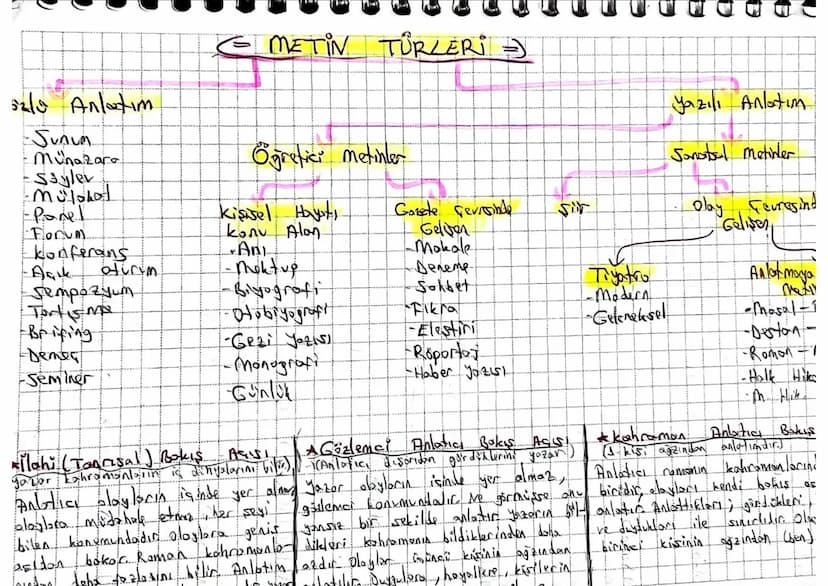 (= METİN TÜRLERİ =)
Anlatım
- Sunum
- Münazara
- Söylev
- Mülakat
- Panel
- Forum
- Konferans
- Açık oturum
- Sempozyum
- Tartışma
- Brifing
- Demeç
- Seminer
Yazılı Anlatım
Öğretici Metinler
Kişisel Hayatı
Konu Alan
- Anı
- Mektup
- Biyografi
- Otobiyografi
- Gezi Yazısı
- Monografi
- Günlük
Gazete Çevresinde
Gelişen
- Makale
- Deneme
- Sohbet
- Fıkra
- Eleştiri
- Röportaj
- Haber Yazısı
Sanatsal Metinler
Şiir
Olay Çevresind
Gelişen
Tiyatro
- Modern
- Geleneksel
Anlatmaya
Meti
- Masal -
- Destan -
- Roman -
- Halk Hik
- M. Hik.
★İlahi (Tanrısal) Bakış Açısı
Yazar kahramanların iç dünyalarını bilir)
Anlatıcı olayların içinde yer almaz
olaylara müdahale etmez, her şeyi
bilen konumundadır olaylara geniş
açıdan bakar. Roman kahramanla-
daha fazlasını bilir. Anlatım
★Gözlemci Anlatıcı Bakış Açısı
(Anlatıcı dışarıdan gördüklerini yazar)
Yazar olayların içinde yer almaz,
gözlemci konumundadır ve görmüşse onu
yansız bir şekilde anlatır yazarın bil-
dikleri kahramanın bildiklerinden daha
azdır Olaylar üçüncü kişinin ağzından
anlatılır Duygulara, hayallere, kişilerin
★Kahraman Anlatıcı Bakış
(1. kişi ağzından anlatımdır.)
Anlatıcı romanın kahramanların
biridir, olayları kendi bakış aç
anlatır Anlattıkları; gördükleri,
ve duydukları ile sınırlıdır Ola
birinci kişinin ağzından (ben)